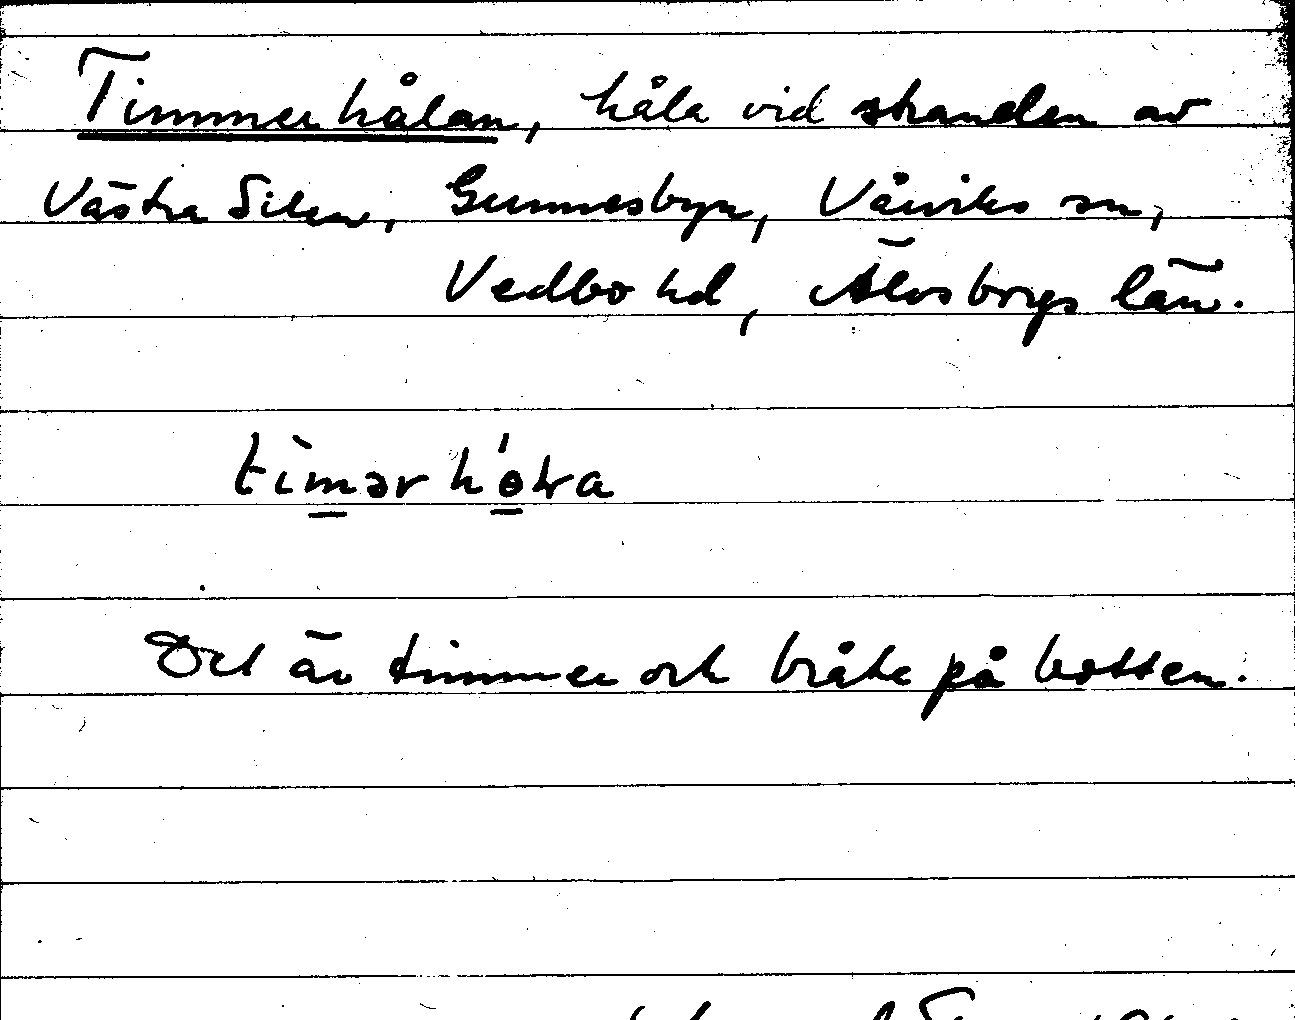 Timmerhålan, håla vid stranden av
Västra Silen, Gunnesbyn, Vårviks sn,
Vedbo hd, Älvsborgs län.
Det är timmer och bråte på botten.